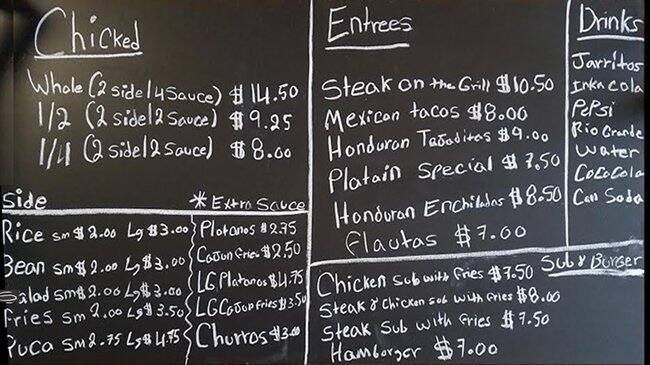 Chicked
Whole (2 side/4 Sauce) $14.50
1/2 (2 side/2 Sauce) $9.25
1/4 (2 side/2 Sauce) $8.00
Side
Rice sm $2.00 Lg $3.00
Bean sm $2.00 Lg $3.00
Salad sm $2.00 Lg $3.00
Fries sm 2.00 Lg $3.50
Yuca sm 2.75 Lg $4.75
* Extra Sauce
Platanos $2.75
Cajun fries $2.50
LG Platanos $4.75
LG Cajun Fries $3.50
Churros $3.00
Entrees
Steak on the Grill $10.50
Mexican tacos $8.00
Honduran Tajaditas $9.00
Platain Special $7.50
Honduran Enchiladas $8.50
Flautas $7.00
Sub & Burger
Chicken Sub with Fries $7.50
Steak & Chicken sub with Fries $8.00
Steak Sub with Fries $7.50
Hamborger $7.00
Drinks
Jarritos
Inka cola
Pepsi
Rio Grande
Water
CocoCola
Can Soda